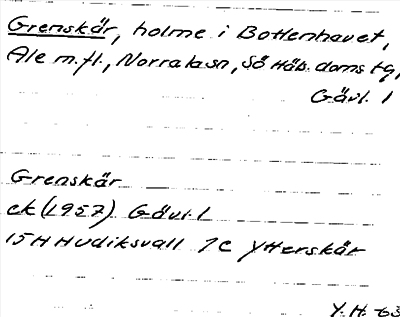 Grenskär, holme i Bottenhavet,
Ale m.fl., Norrala sn, Sö Häls. doms tg,
Gävl. l
Grenskär
ek (1957) Gävl. l
15H Hudiksvall 7c Ytterskär
Y.H. -63